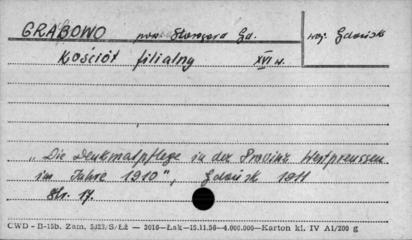 GRABOWO pow. Starogard Gd. woj. Gdańsk
Kościół filialny XVI w.
„Die Denkmalpflege in der Provinz Westpreussen
im Jahre 1910", Gdańsk 1911
Str. 17.
CWD - B-15b. Zam. 5323/S/Łż — 3016-Łak-15.11.56-4.000.000-Karton kl. IV A1/200 g